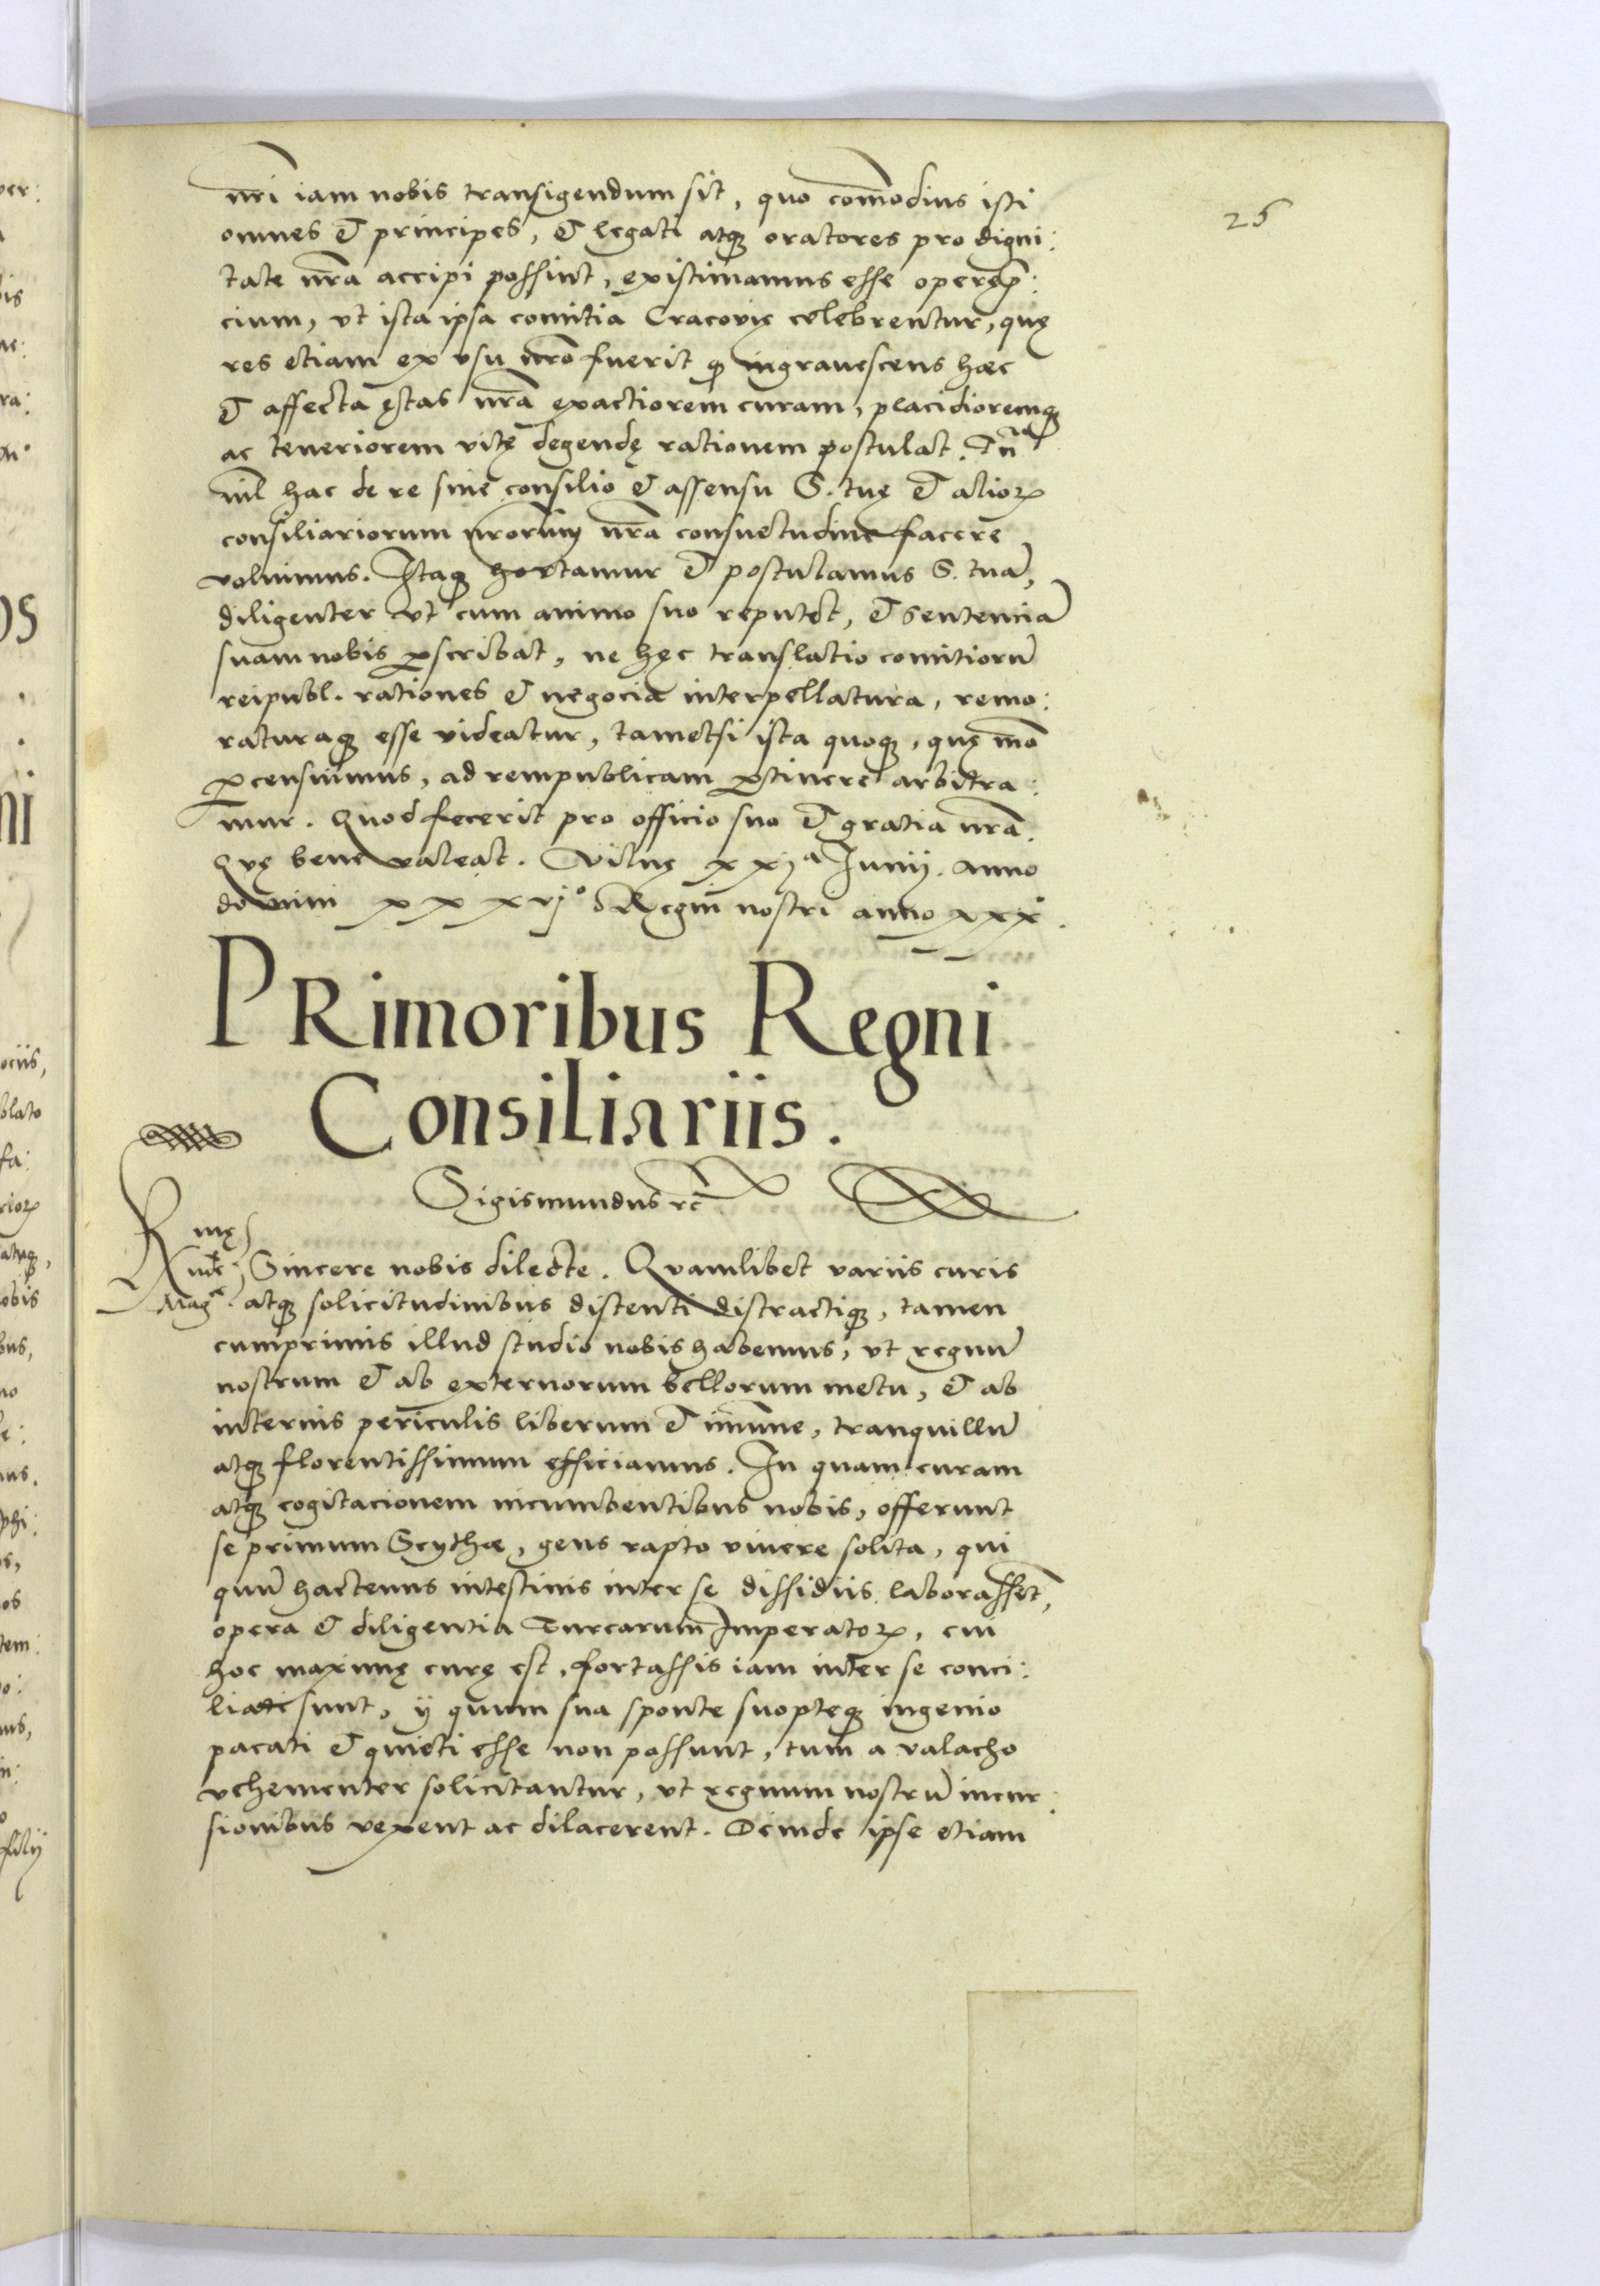 25
nr̃i iam nobis transigendum sit, quo com̃odius isti
omnes et principes, et legati atq; oratores pro digni:
tate nr̃a accipi possint, existimamus esse operęp̃:
cium, vt ista ipsa comitia Cracovię celebrentur, quę
res etiam ex vsu nr̃o fuerit q̨ ingravescens hæc
et affecta ętas nr̃a exactiorem curam, placidioremq;
ac teneriorem vitę degendę rationem postulat. Tn̄
nil hac de re sine consilio et assensu S. tuę et alioꝝ
consiliariorum nr̃orum nr̃a consuetudine facere
voluimus. Itaq; hortamur et postulamus S. tuā,
diligenter vt cum animo suo reputet, et sentenciā
suam nobis ꝑscribat, ne hęc translatio comitiorū
reipubl. rationes et negocia interpellatura, remo:
raturaq; esse videatur, tametsi ista quoq;, quę mõ
ꝑcensuimus, ad rempublicam ꝑtinere arbitra:
mur. Quod fecerit pro officio suo et gratia nr̃a.
Quę bene valeat. Vilnę xxjª Junij. anno
domini xxxvjº Regni nostri anno xxxº.
PRimoribus Regni
Consiliariis.
Sigismundus rc̃
Rmę
Rnde; Sincere nobis dilecte. Quamlibet variis curis
Mag^ce. atq; solicitudinibus distenti distractiq;, tamen
cumprimis illud studio nobis habemus, vt regnū
nostrum et ab externorum bellorum metu, et ab
internis periculis liberum et im̃une, tranquillū
atq; florentissimum efficiamus. In quam curam
atq; cogitacionem incumbentibus nobis, offerunt
se primum Scythæ, gens rapto vivere solita, qui
quū hactenus intestinis inter se dissidiis laborassēt,
opera et diligentia Turcarum Imperatoꝝ, cui
hoc maximę curę est, fortassis iam inter se conci:
liati sunt, ij quum sua sponte suopteq; ingenio
pacati et quieti esse non possunt, tum a valacho
vehementer solicitantur, vt regnum nostrū incur:
sionibus vexent ac dilacerent. Deinde ipse etiam